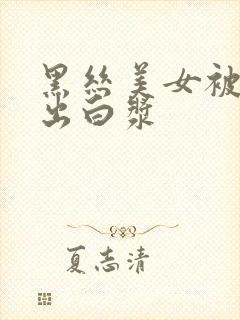 黑丝美女被
出白浆
夏志清